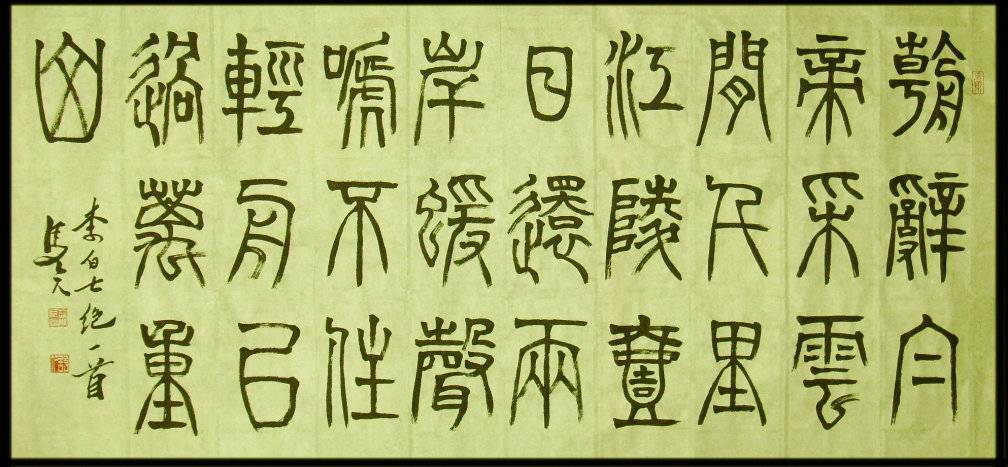 朝辭白
帝采雲
間千里
江陵壹
日還兩
岸蝯聲
嗁不住
輕舟已
過萬重
山
李白七绝一首